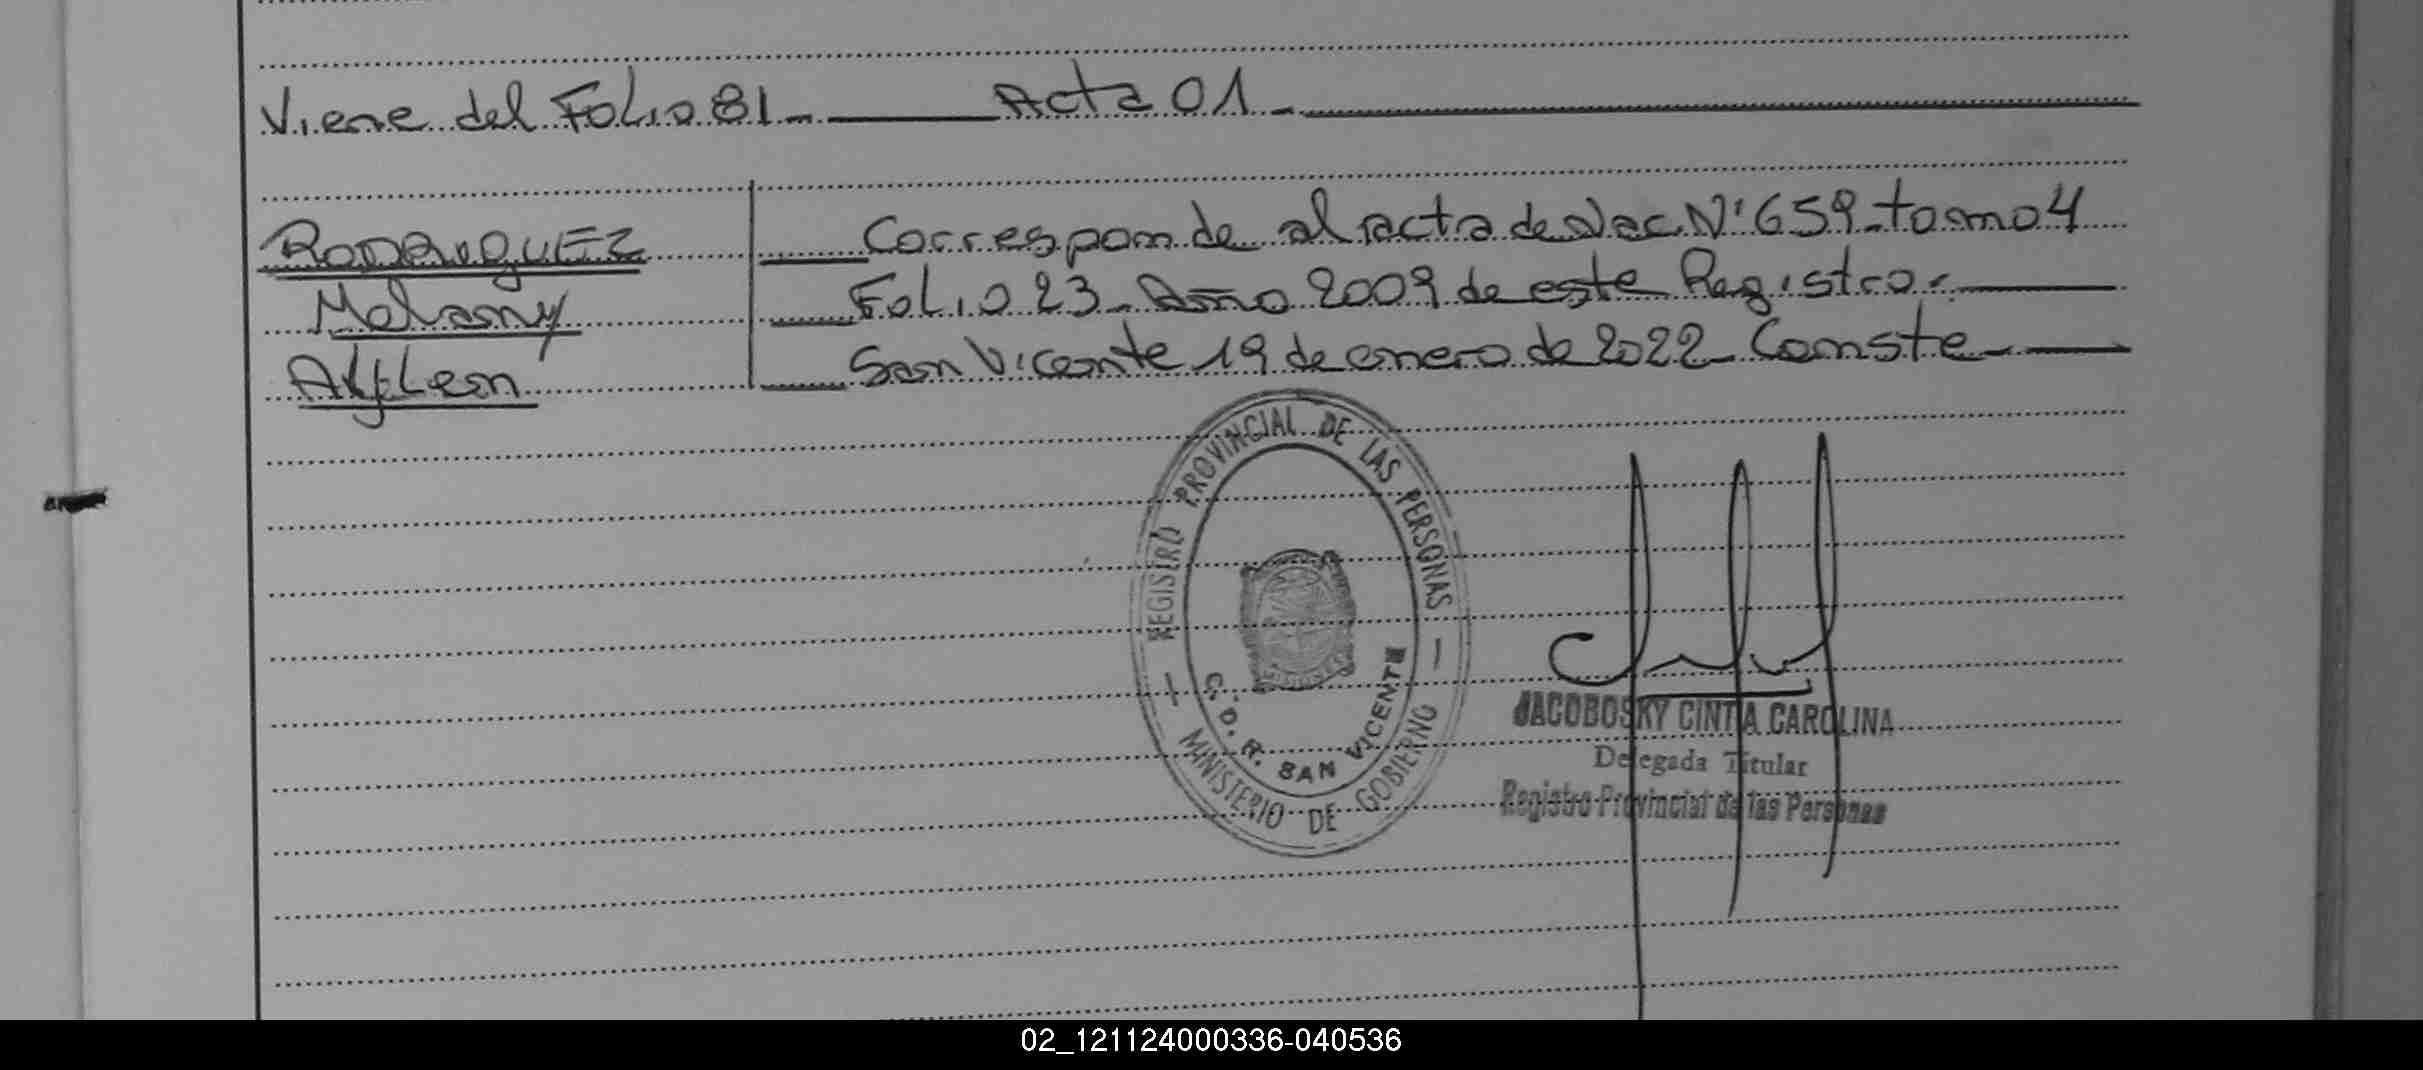 Viene del Folio 81 - Acta 01 -
RODRIGUEZ Corresponde al acta de Nac. N° 659 - tomo 4
Melany Folio 23 - Año 2009 de este Registro.-
San Vicente 19 de enero de 2022 - Conste -
REGISTRO PROVINCIAL DE LAS PERSONAS
MINISTERIO DE GOBIERNO
C. D. R. SAN VICENTE
MISIONES
JACOBOSKY CINTIA CAROLINA
Delegada Titular
Registro Provincial de las Personas
02_121124000336-040536